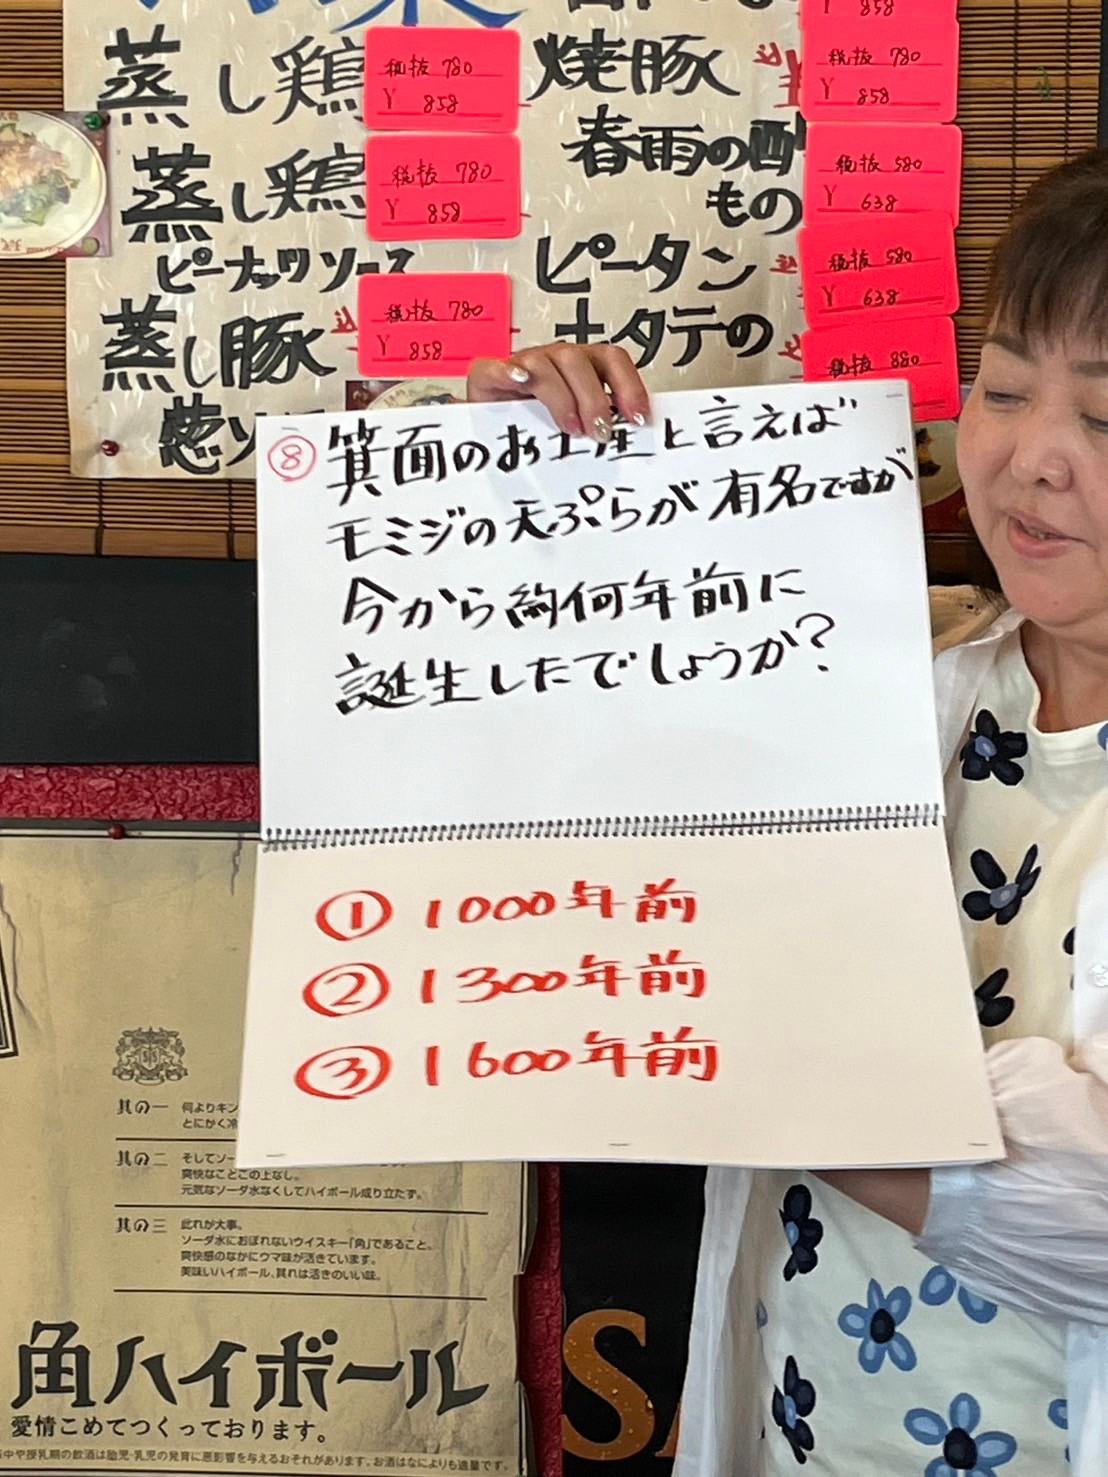 蒸し鶏
税抜 780
¥ 858
蒸し鶏
ピーナッツソース
税抜 780
¥ 858
蒸し豚
税抜 780
¥ 858
葱ソ
¥ 858
焼豚
税抜 780
¥ 858
春雨の酢
もの
税抜 580
¥ 638
ピータン
税抜 580
¥ 638
ホタテの
税抜 880
⑧ 箕面のお土産と言えば
モミジの天ぷらが有名ですが
今から約何年前に
誕生したでしょうか？
① 1000年前
② 1300年前
③ 1600年前
其の一 何よりキン
とにかく冷
其の二 そしてソー
爽快なことこの上なし。
元気なソーダ水なくしてハイボール成り立たず。
其の三 此れが大事。
ソーダ水におぼれないウイスキー「角」であること。
爽快感のなかにウマ味が活きています。
美味いハイボール、其れは活きのいい味。
角ハイボール
愛情こめてつくっております。
中や授乳期の飲酒は胎児・乳児の発育に悪影響を与えるおそれがあります。お酒はなによりも適量です。
S